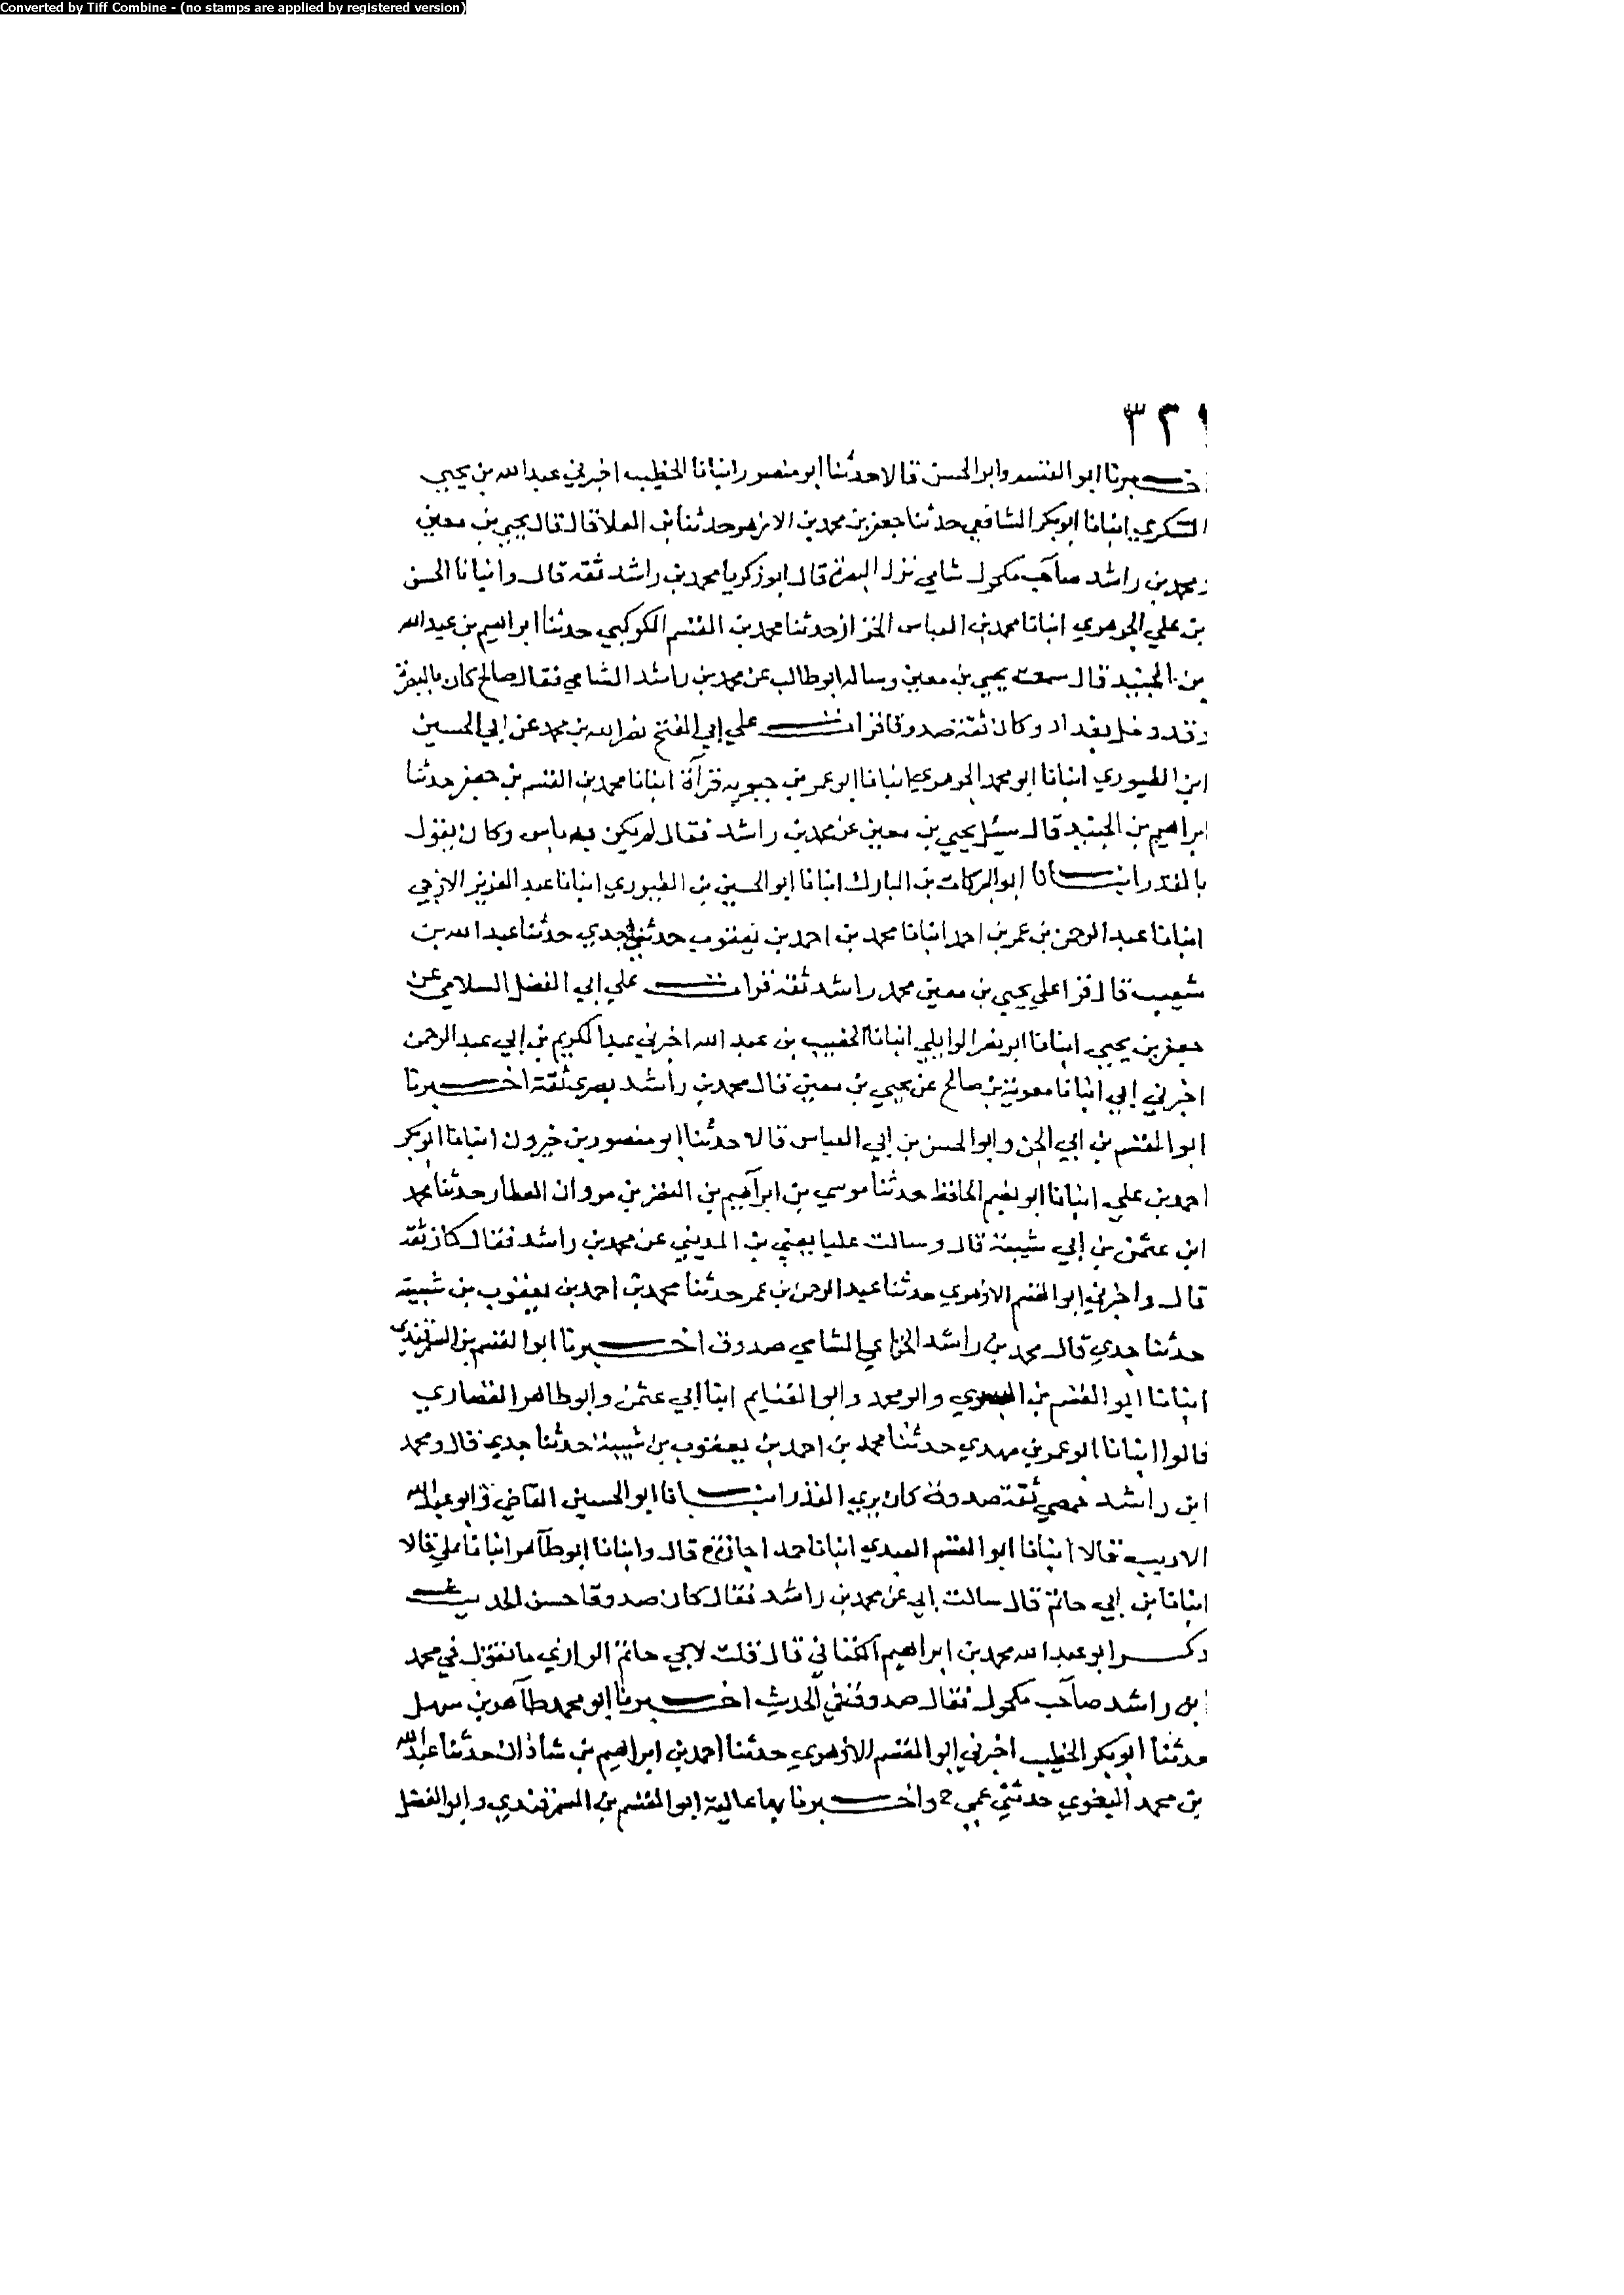 Converted by Tiff Combine - (no stamps are applied by registered version)
٣٢
اخبرنا ابو القسم وابو الحسن قالا حدثنا ابو منصور انبانا الخطيب اخبرني عبد الله بن يحيي
السكري انبانا ابو بكر الشافعي حدثنا جعفر بن محمد بن الازهر حدثنا بن العلا قال قال يحيي بن معين
ومحمد بن راشد صاحب مكحول شامي نزل البصرة قال ابو زكريا محمد بن راشد ثقه قال وانبانا الحسن
بن علي الجوهري انبانا محمد بن العباس الخزاز حدثنا محمد بن القسم الكوكبي حدثنا ابراهيم بن عبد الله
بن الجنيد قال سمعت يحيي بن معين وساله ابو طالب عن محمد بن راشد الشامي فقال صالح كان بالبصرة
وقد دخل بغداد وكان ثقة صدوقا قرات علي ابي الفتح نصر الله بن محمد عن ابي الحسين
ابن الطيوري انبانا ابو محمد الجوهري انبانا ابو عمر بن حيويه قرآة انبانا محمد بن القسم بن جعفر حدثنا
ابراهيم بن الجنيد قال سيئل يحيي بن معين عن محمد بن راشد فقال لم يكن به باس وكان يقول
بالقدر انبانا ابو البركات بن المبارك انبانا ابو الحسين بن الطيوري انبانا عبد العزيز الازجي
انبانا عبد الرحمن بن عمر بن احمد انبانا محمد بن احمد بن يعقوب حدثني جدي حدثنا عبد الله بن
شعيب قال قرا علي يحيي بن معين محمد راشد ثقة قرات علي ابي الفضل السلامي عن
جعفر بن يحيي انبانا ابو نصر الوايلي انبانا الخصيب بن عبد الله اخبرني عبد الكريم بن ابي عبد الرحمن
اخبرني ابي انبانا معوية بن صالح عن يحيي بن معين قال محمد بن راشد بصري ثقة اخبرنا
ابو القسم بن ابي الجن وابو الحسن بن ابي العباس قالا حدثنا ابو منصور بن خيرون انبانا ابو بكر
احمد بن علي انبانا ابو نعيم الحافظ حدثنا موسي بن ابراهيم بن النضر بن مروان العطار حدثنا محمد
ابن عثمن بن ابي شيبة قال وسالت عليا يعني بن المديني عن محمد بن راشد فقال كان ثقة
قال واخبرني ابو القسم الازهري حدثنا عبد الرحمن بن عمر حدثنا محمد بن احمد بن يعقوب بن شيبة
حدثنا جدي قال محمد بن راشد الخزاعي الشامي صدوق اخبرنا ابو القسم بن السمرقندي
انبانا ابو القسم بن البسري وابو محمد وابو الغنايم ابنا ابي عثمن وابو طاهر القصاري
قالوا انبانا ابو عمر بن مهدي حدثنا محمد بن احمد بن يعقوب بن شيبة حدثنا جدي قال ومحمد
ابن راشد حمصي ثقة صدوق كان يري القدر انبانا ابو الحسين القاضي وابو عبد الله
الاديب قالا انبانا ابو القسم العبدي انبانا حمد اجازة ح قال وانبانا ابو طاهر انبانا علي قالا
انبانا بن ابي حاتم قال سالت ابي عن محمد بن راشد فقال كان صدوقا حسن الحديث
ذكر ابو عبد الله محمد بن ابراهيم الكتاني قال قلت لابي حاتم الرازي ما تقول في محمد
ابن راشد صاحب مكحول فقال صدوق الحديث اخبرنا ابو محمد طاهر بن سهل
حدثنا ابو بكر الخطيب اخبرني ابو القسم الازهري حدثنا احمد بن ابراهيم بن شاذان حدثنا عبد الله
بن محمد البغوي حدثني عمي ح واخبرنا بها عالية ابو القسم بن السمرقندي وابو الفضل